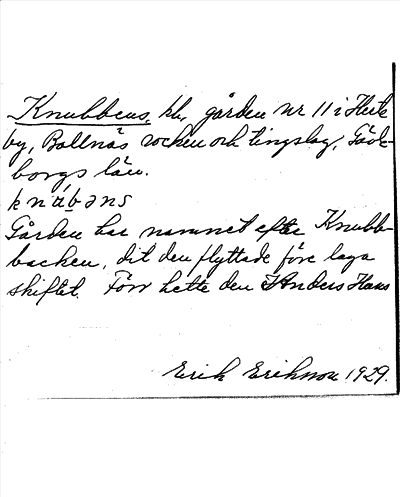 Knubbens, kl, gården nr 11 i Heste
by, Bollnäs socken och tingslag, Gävle-
borgs län.
knúbəns
Gården har namnet efter Knubb-
backen, dit den flyttade före laga
skiftet. Förr hette den Anders Hans
Erik Erikson 1929.